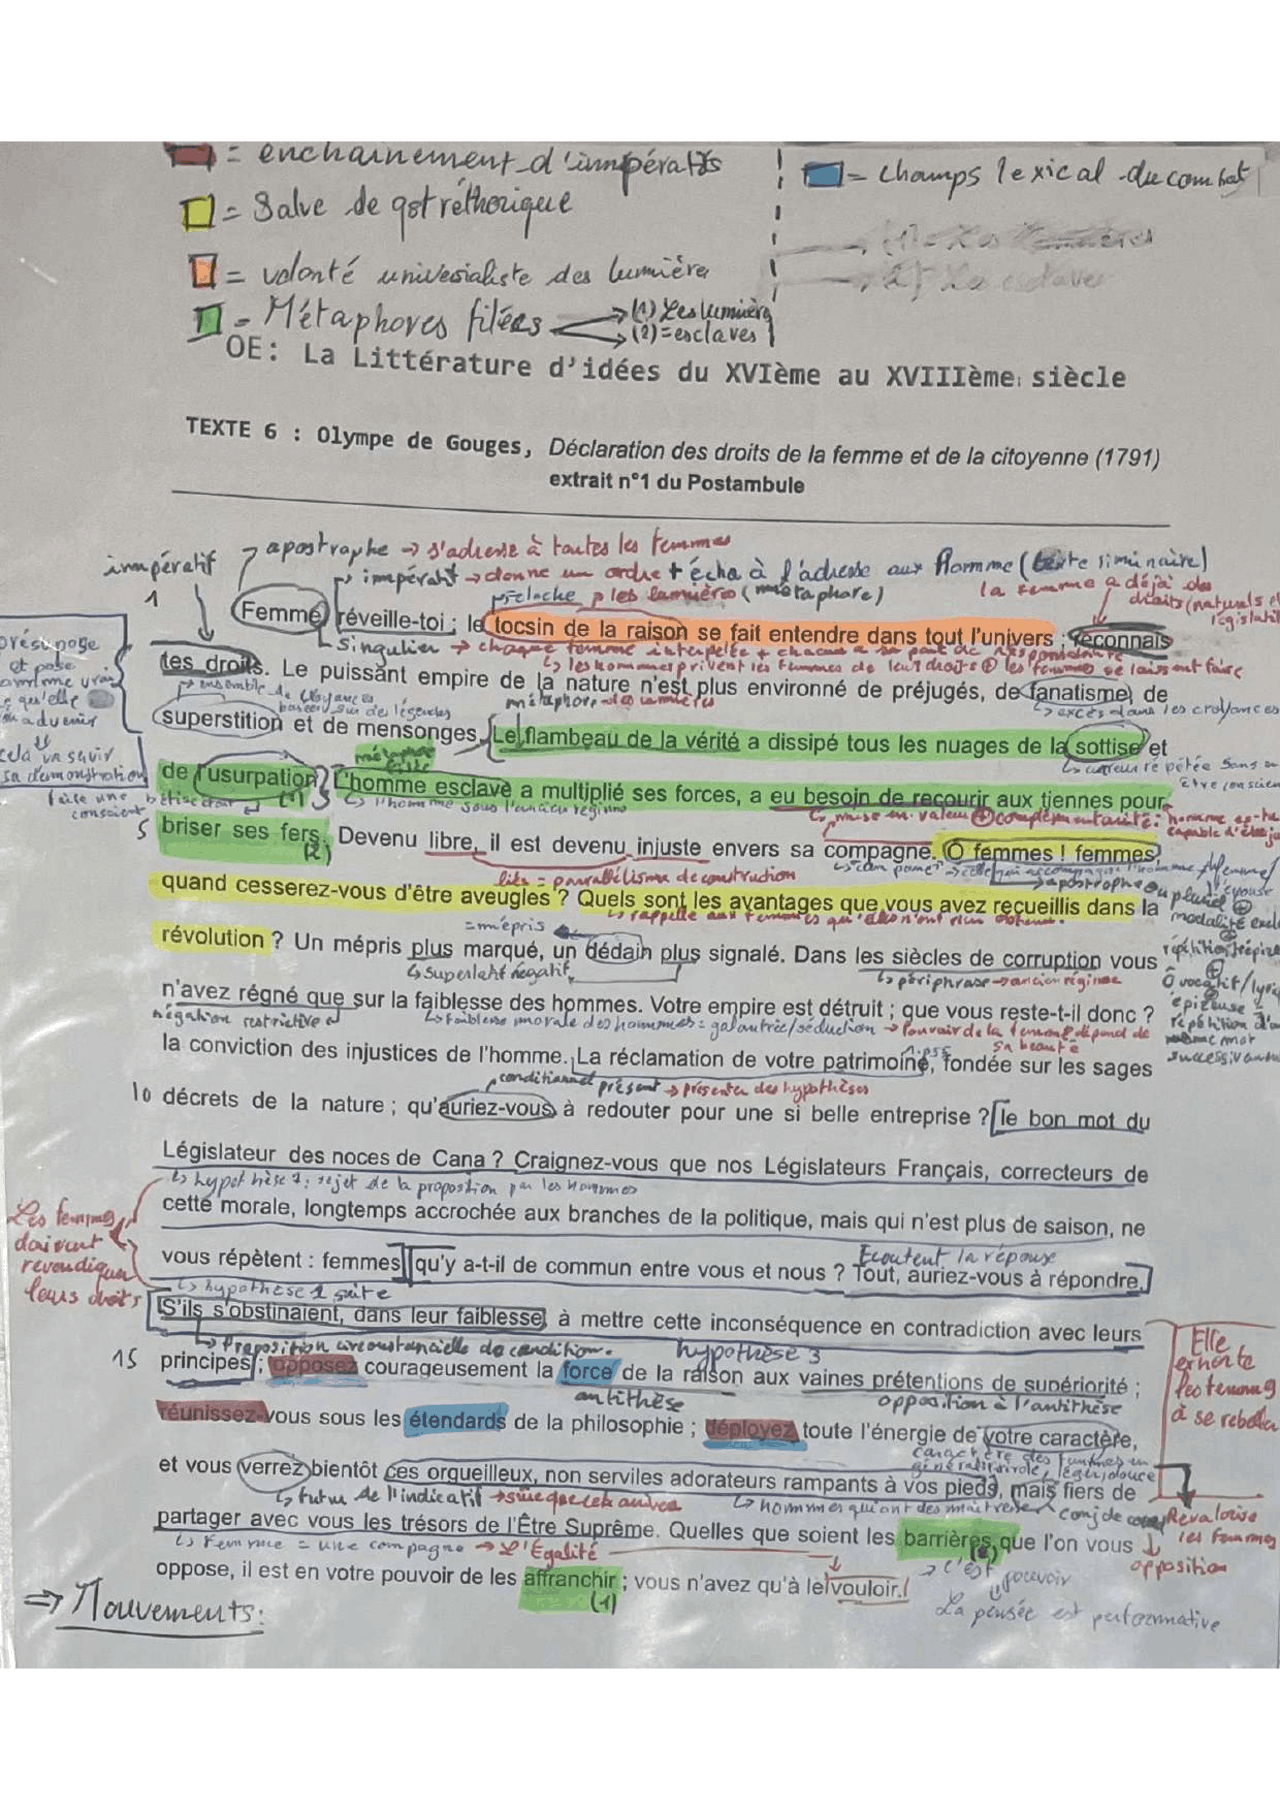 = enchainement d'impératifs
= champs lexical du combat
= Salve de qst réthorique
= volonté univesialiste des lumière
= Métaphores filées → (1) Les lumière
→ (2) = esclaves
OE: La Littérature d'idées du XVIème au XVIIIème siècle
TEXTE 6 : Olympe de Gouges, Déclaration des droits de la femme et de la citoyenne (1791)
extrait n°1 du Postambule
apostrophe → s'adresse à toutes les femmes
impératif
1
impératif → donne un ordre + écho à l'adresse aux Homme (texte siminaire)
la femme a déjà des
droits (naturels et
législatif
Femme, réveille-toi ; le tocsin de la raison se fait entendre dans tout l'univers ; reconnais
Singulier → chaque femme interpelée
↳ les hommes privent les femmes de leur droits ⊕ les femmes se laissent faire
tes droits. Le puissant empire de la nature n'est plus environné de préjugés, de fanatisme, de
→ ensemble de croyances
basées sur des légendes
↳ excès dans les croyances
superstition et de mensonges. Le flambeau de la vérité a dissipé tous les nuages de la sottise et
métaphore filée
cela va servir
sa demonstration
de l'usurpation. L'homme esclave a multiplié ses forces, a eu besoin de recourir aux tiennes pour
(1)
↳ l'homme sous l'ancien régime
↳ mise en valeur ⊕ complémentarité:
5 briser ses fers. Devenu libre, il est devenu injuste envers sa compagne. Ô femmes ! femmes,
(2)
liés = parallélisme de construction
quand cesserez-vous d'être aveugles ? Quels sont les avantages que vous avez recueillis dans la
↳ rappelle aux femmes qu'elles n'ont rien obtenu.
= mépris
révolution ? Un mépris plus marqué, un dédain plus signalé. Dans les siècles de corruption vous
↳ superlatif négatif
↳ périphrase → ancien régime
n'avez régné que sur la faiblesse des hommes. Votre empire est détruit ; que vous reste-t-il donc ?
négation restrictive
↳ faiblesse morale des hommes = galantrie/séduction → Pouvoir de la femme dépend de
sa beauté
la conviction des injustices de l'homme. La réclamation de votre patrimoine, fondée sur les sages
conditionnel présent → présenter des hypothèses
10 décrets de la nature ; qu'auriez-vous à redouter pour une si belle entreprise ? le bon mot du
Législateur des noces de Cana ? Craignez-vous que nos Législateurs Français, correcteurs de
↳ hypothèse 1: rejet de la propostion par les hommes
cette morale, longtemps accrochée aux branches de la politique, mais qui n'est plus de saison, ne
Les femmes
doivent
revendiquer
leurs droits
Ecoutent la réponse
vous répètent : femmes, qu'y a-t-il de commun entre vous et nous ? Tout, auriez-vous à répondre.
↳ hypothèse 1 suite
S'ils s'obstinaient, dans leur faiblesse, à mettre cette inconséquence en contradiction avec leurs
↳ Proposition circonstancielle de condition.
hypothèse 3
15 principes ; opposez courageusement la force de la raison aux vaines prétentions de supériorité ;
antithèse
opposition à l'antithèse
Elle
exhorte
les femmes
à se rebeller
réunissez-vous sous les étendards de la philosophie ; déployez toute l'énergie de votre caractère,
caractère des femmes en
et vous verrez bientôt ces orgueilleux, non serviles adorateurs rampants à vos pieds, mais fiers de
↳ futur de l'indicatif → sûre que cela arrivera
Revalorise
les femmes
↓
opposition
partager avec vous les trésors de l'Être Suprême. Quelles que soient les barrières que l'on vous
↳ Femme = une compagne → L'Égalité
oppose, il est en votre pouvoir de les affranchir ; vous n'avez qu'à le vouloir.
(1)
→ c'est pouvoir
La pensée est performative
⇒ Mouvements: